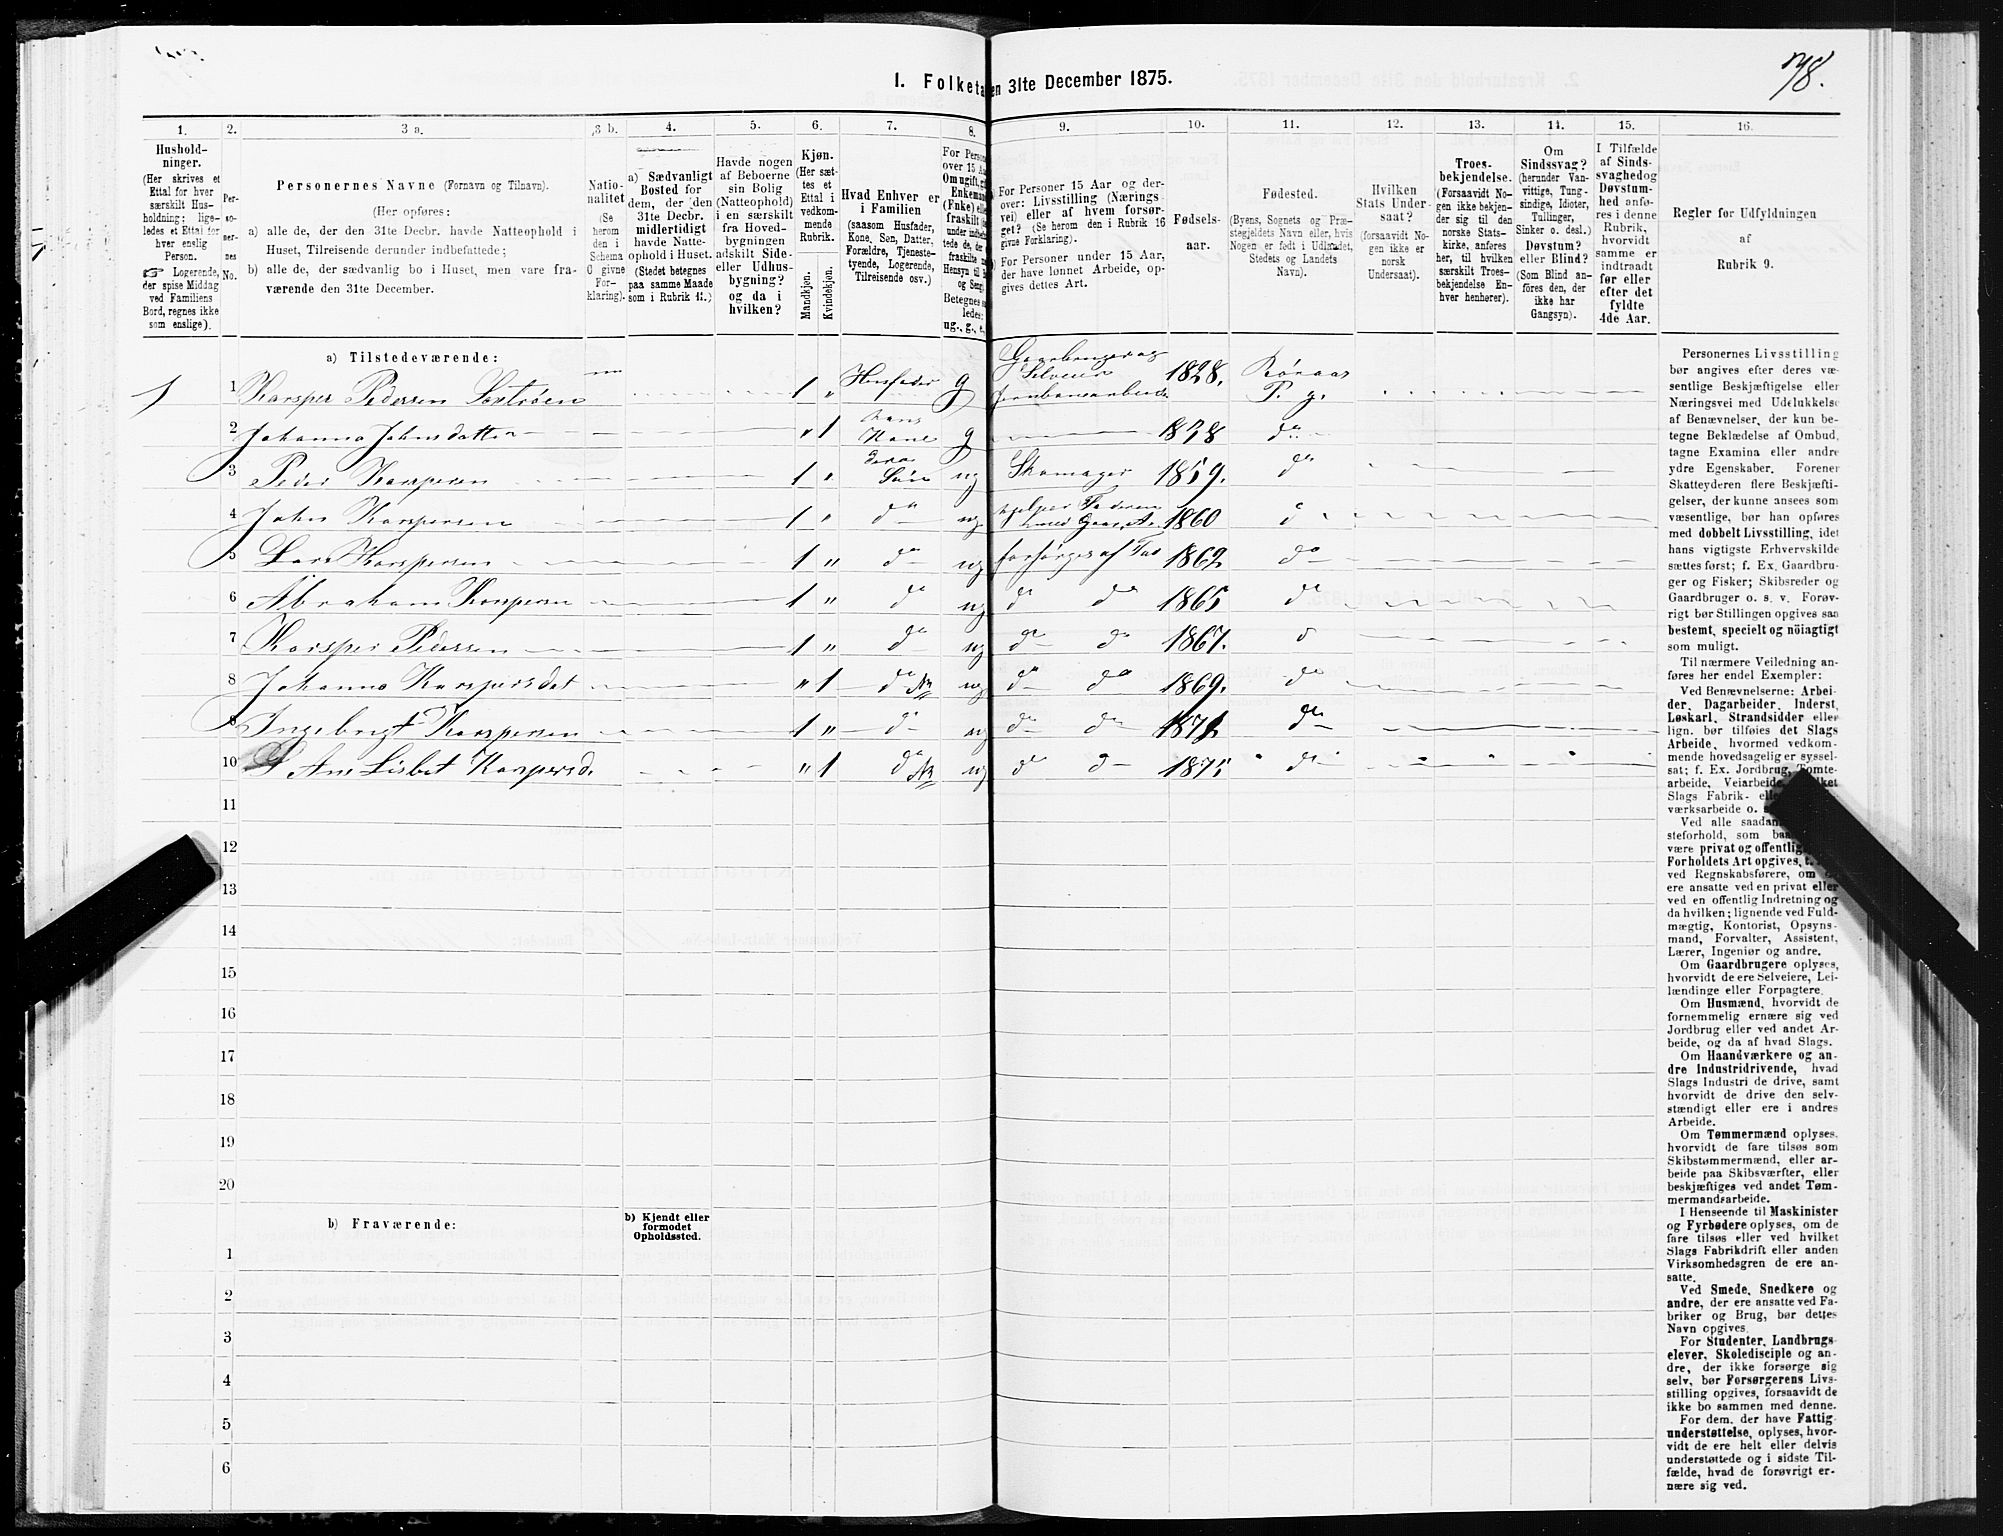 78.
I. Folketa
en 31te December 1875.
1. 2. 3 a. 3 b. 4. 5. 6. 7. 8. 9. 10. 11. 12. 13. 14. 15. 16.
Hushold-
ninger.
(Her skrives et
Ettal for hver
særskilt Hus-
holdning; lige-
ledes et Ettal for
hver enslig
Person.
☞ Logerende,
der spise Middag
ved Familiens
Bord, regnes ikke
som enslige).
Per-
so-
ner-
nes
No.
Personernes Navne (Fornavn og Tilnavn).
(Her opføres:
a) alle de, der den 31te Decbr. havde Natteophold i
Huset, Tilreisende derunder indbefattede;
b) alle de, der sædvanlig bo i Huset, men vare fra-
værende den 31te December.
Natio-
nalitet
(Se
herom
den i
Schema
0 givne
For-
klaring).
a) Sædvanligt
Bosted for
dem, der den
31te Decbr.
midlertidigt
havde Natte-
ophold i Huset.
(Stedet betegnes
paa samme Maade
som i Rubrik 11.)
Havde nogen
af Beboerne
sin Bolig
(Natteophold)
i en særskilt
fra Hoved-
bygningen
adskilt Side-
eller Udhus-
bygning?
og da i
hvilken?
Kjøn.
(Her sæt-
tes et
Ettal i
vedkom-
mende
Rubrik.
Mandkjøn.
Kvindekjøn.
Hvad Enhver er
i Familien
(saasom Husfader,
Kone, Søn, Datter,
Forældre, Tjeneste-
tyende, Logerende,
Tilreisende osv.)
For Person
over 15 Aa
Om ugift, g
Enkemand
(Enke) elle
fraskilt
Betegnes sa
ledes:
ug., g., e.,
a) For Personer 15 Aar og der-
over: Livsstilling (Nærings-
vei) eller af hvem forsør-
get? (Se herom den i Rubrik 16
givne Forklaring).
b) For Personer under 15 Aar,
der have lønnet Arbeide, op-
gives dettes Art.
Fødsels-
aar.
Fødested.
(Byens, Sognets og Præ-
stegjeldets Navn eller, hvis
Nogen er født i Udlandet,
Stedets og Landets
Navn).
Hvilken
Stats Under-
saat?
(forsaavidt No-
gen ikke er
norsk
Undersaat).
Troes-
bekjendelse.
(Forsaavidt No-
gen ikke bekjen-
der sig til den
norske Stats-
kirke, anføres
her, til hvilken
særskilt Troes-
bekjendelse En-
hver henhører).
Om
Sindssvag?
(herunder Van-
vittige, Tung-
sindige, Idioter,
Tullinger,
Sinker o. desl.)
Døvstum?
eller Blind?
(Som Blind an-
føres den, der
ikke har
Gangsyn).
I Tilfælde
af Sinds-
svaghed og
Døvstum-
hed anfø-
res i denne
Rubrik,
hvorvidt
samme er
indtraadt
før eller
efter det
fyldte
4de Aar.
Regler for Udfyldningen
af
Rubrik 9.
a) Tilstedeværende:
1 1 Karsper Pedersen 1 " Husfader g Gaarbruger og Selveier Jernbanearbeide 1828. Röraas P. g.
2 Johanna Johnsdatter " 1 hans Kone g 1838 do
3 Peder Karspersen 1 " deres Sön ug Skomager 1859. do
4 John Karspersen 1 " do ug hjelper Faderen med 1860 d
5 Lars Karspersen 1 " do ug forsörges af Fad 1862 do
6 Abraham Karspersen 1 " do ug do do 1865 do
7 Karsper Pedersen 1 " do ug do do 1867. d
8 Johanna Karspersdat " 1 do ug do do 1869. do
9 Ingebrigt Karspersen 1 " do ug do do do
10 Ane Lisbet Karspersd. " 1 do ug do do 1875 do
11
12
13
14
15
16
17
18
19
20
b) Fraværende:
b) Kjendt eller
formodet
Opholdssted.
1
2
3
4
5
6
Personernes Livsstilling
bør angives efter deres væ-
sentlige Beskjæftigelse eller
Næringsvei med Udelukkelse
af Benævnelser, der kun be-
tegne Beklædelse af Ombud,
tagne Examina eller andre
ydre Egenskaber. Forener
Skatteyderen flere Beskjæfti-
gelser, der kunne ansees som
væsentlige, bør han opføres
med dobbelt Livsstilling, idet
hans vigtigste Erhvervskilde
sættes først; f. Ex. Gaardbru-
ger og Fisker; Skibsreder og
Gaardbruger o. s. v. Forøv-
rigt bør Stillingen opgives saa
bestemt, specielt og nöiagtigt
som muligt.
Til nærmere Veiledning an-
føres her endel Exempler:
Ved Benævnelserne: Arbei-
der, Dagarbeider, Inderst,
Løskarl, Strandsidder eller
lign. bør tilføies det Slags
Arbeide, hvormed vedkom-
mende hovedsagelig er syssel-
sat; f. Ex. Jordbrug, Tomte-
arbeide, Veiarbeide,
Slags Fabrik-
værksarbeide o. s.
Ved alle saadan
steforhold, som
være privat og offentlig
Forholdets Art opgives,
ved Regnskabsførere, om
ere ansatte ved en privat eller
ved en offentlig Indretning og
da hvilken; lignende ved Fuld-
mægtig, Kontorist, Opsyns-
mand, Forvalter, Assistent,
Lærer, Ingeniør og andre.
Om Gaardbrugere oplyses,
hvorvidt de ere Selveiere, Lei-
lændinge eller Forpagtere.
Om Husmænd, hvorvidt de
fornemmelig ernære sig ved
Jordbrug eller ved andet Ar-
beide, og da af hvad Slags.
Om Haandværkere og an-
dre Industridrivende, hvad
Slags Industri de drive, samt
hvorvidt de drive den selv-
stændigt eller ere i andres
Arbeide.
Om Tømmermænd oplyses,
hvorvidt de fare tilsøs som
Skibstømmermænd, eller ar-
beide paa Skibsværfter, eller
beskjæftiges ved andet Tøm-
mermandsarbeide.
I Henseende til Maskinister
og Fyrbødere oplyses, om de
fare tilsøs eller ved hvilket
Slags Fabrikdrift eller anden
Virksomhedsgren de ere an-
satte.
Ved Smede, Snedkere og
andre, der ere ansatte ved Fa-
briker og Brug, bør dettes
Navn opgives.
For Studenter, Landbrugs-
elever, Skoledisciple og an-
dre, der ikke forsørge sig
selv, bør Forsørgerens Livs-
stilling opgives, forsaavidt de
ikke bo sammen med denne.
For dem, der have Fattig-
understøttelse, oplyses, hvor-
vidt de ere helt eller delvis
understøttede og i sidste Til-
fælde, hvad de forøvrigt er-
nære sig ved.